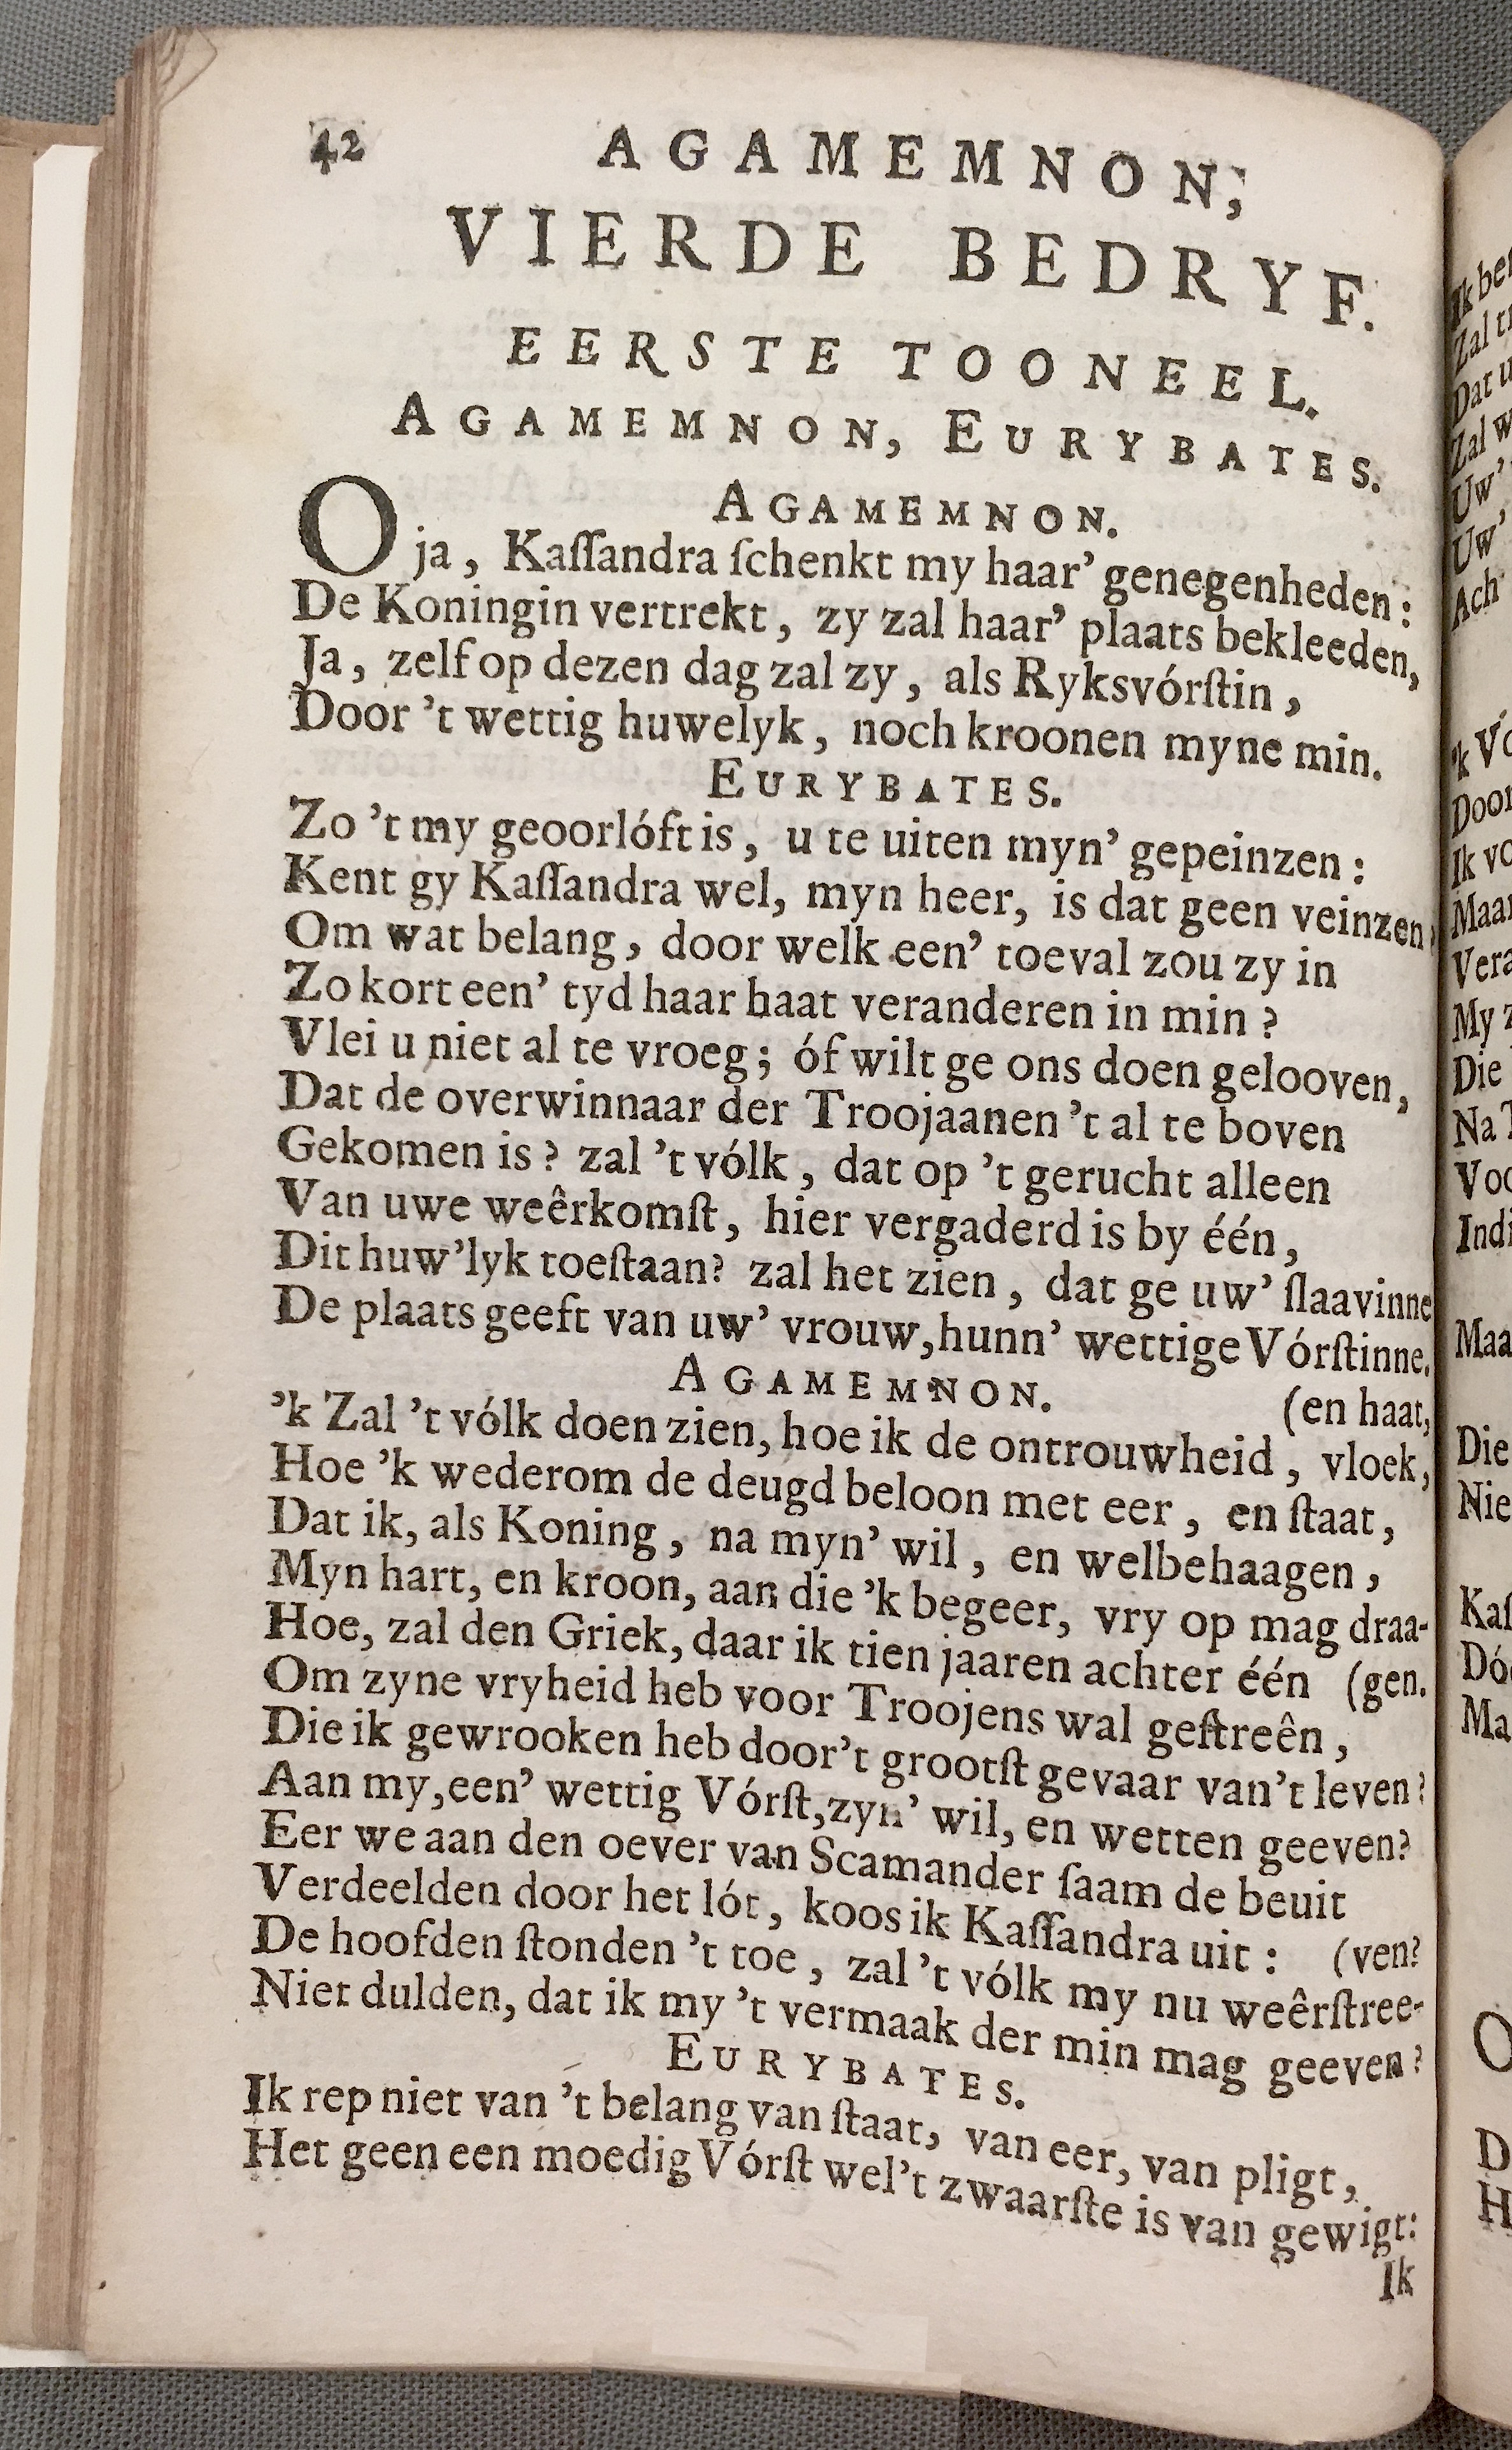 42 AGAMEMNON;
VIERDE BEDRYF.
EERSTE TOONEEL.
AGAMEMNON, EURYBATES.
AGAMEMNON.
O ja, Kaſſandra ſchenkt my haar' genegenheden:
De Koningin vertrekt, zy zal haar' plaats bekleeden,
Ja, zelf op dezen dag zal zy, als Ryksvórſtin,
Door 't wettig huwelyk, noch kroonen myne min.
EURYBATES.
Zo 't my geoorlóft is, u te uiten myn' gepeinzen:
Kent gy Kaſſandra wel, myn heer, is dat geen veinzen?
Om wat belang, door welk een' toeval zou zy in
Zo kort een' tyd haar haat veranderen in min?
Vlei u niet al te vroeg; óf wilt ge ons doen gelooven,
Dat de overwinnaar der Troojaanen 't al te boven
Gekomen is? zal 't vólk, dat op 't gerucht alleen
Van uwe weêrkomſt, hier vergaderd is by één,
Dit huw'lyk toeſtaan? zal het zien, dat ge uw' ſlaavinne
De plaats geeft van uw' vrouw, hunn' wettige Vórſtinne.
AGAMEMNON. (en haat,
'k Zal 't vólk doen zien, hoe ik de ontrouwheid, vloek,
Hoe 'k wederom de deugd beloon met eer, en ſtaat,
Dat ik, als Koning, na myn' wil, en welbehaagen,
Myn hart, en kroon, aan die 'k begeer, vry op mag draa-
Hoe, zal den Griek, daar ik tien jaaren achter één (gen.
Om zyne vryheid heb voor Troojens wal geſtreên,
Die ik gewrooken heb door 't grootſt gevaar van 't leven?
Aan my, een' wettig Vórſt, zyn' wil, en wetten geeven?
Eer we aan den oever van Scamander ſaam de beuit
Verdeelden door het lót, koos ik Kaſſandra uit: (ven?
De hoofden ſtonden 't toe, zal 't vólk my nu weêrſtree-
Niet dulden, dat ik my 't vermaak der min mag geeven?
EURYBATES.
Ik rep niet van 't belang van ſtaat, van eer, van pligt,
Het geen een moedig Vórſt wel 't zwaarſte is van gewigt:
Ik
Zal
Dat
Zal
Uw'
Uw'
Ach
Door
Ik
My
Die
Na
Die